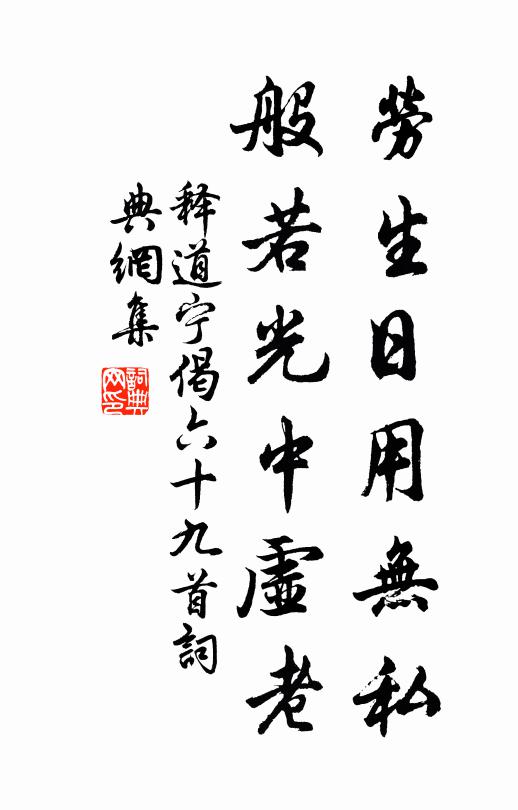 勞生日用無私
般若光中虛老
释道宁偈六十九首詞
典網集
詞典網印